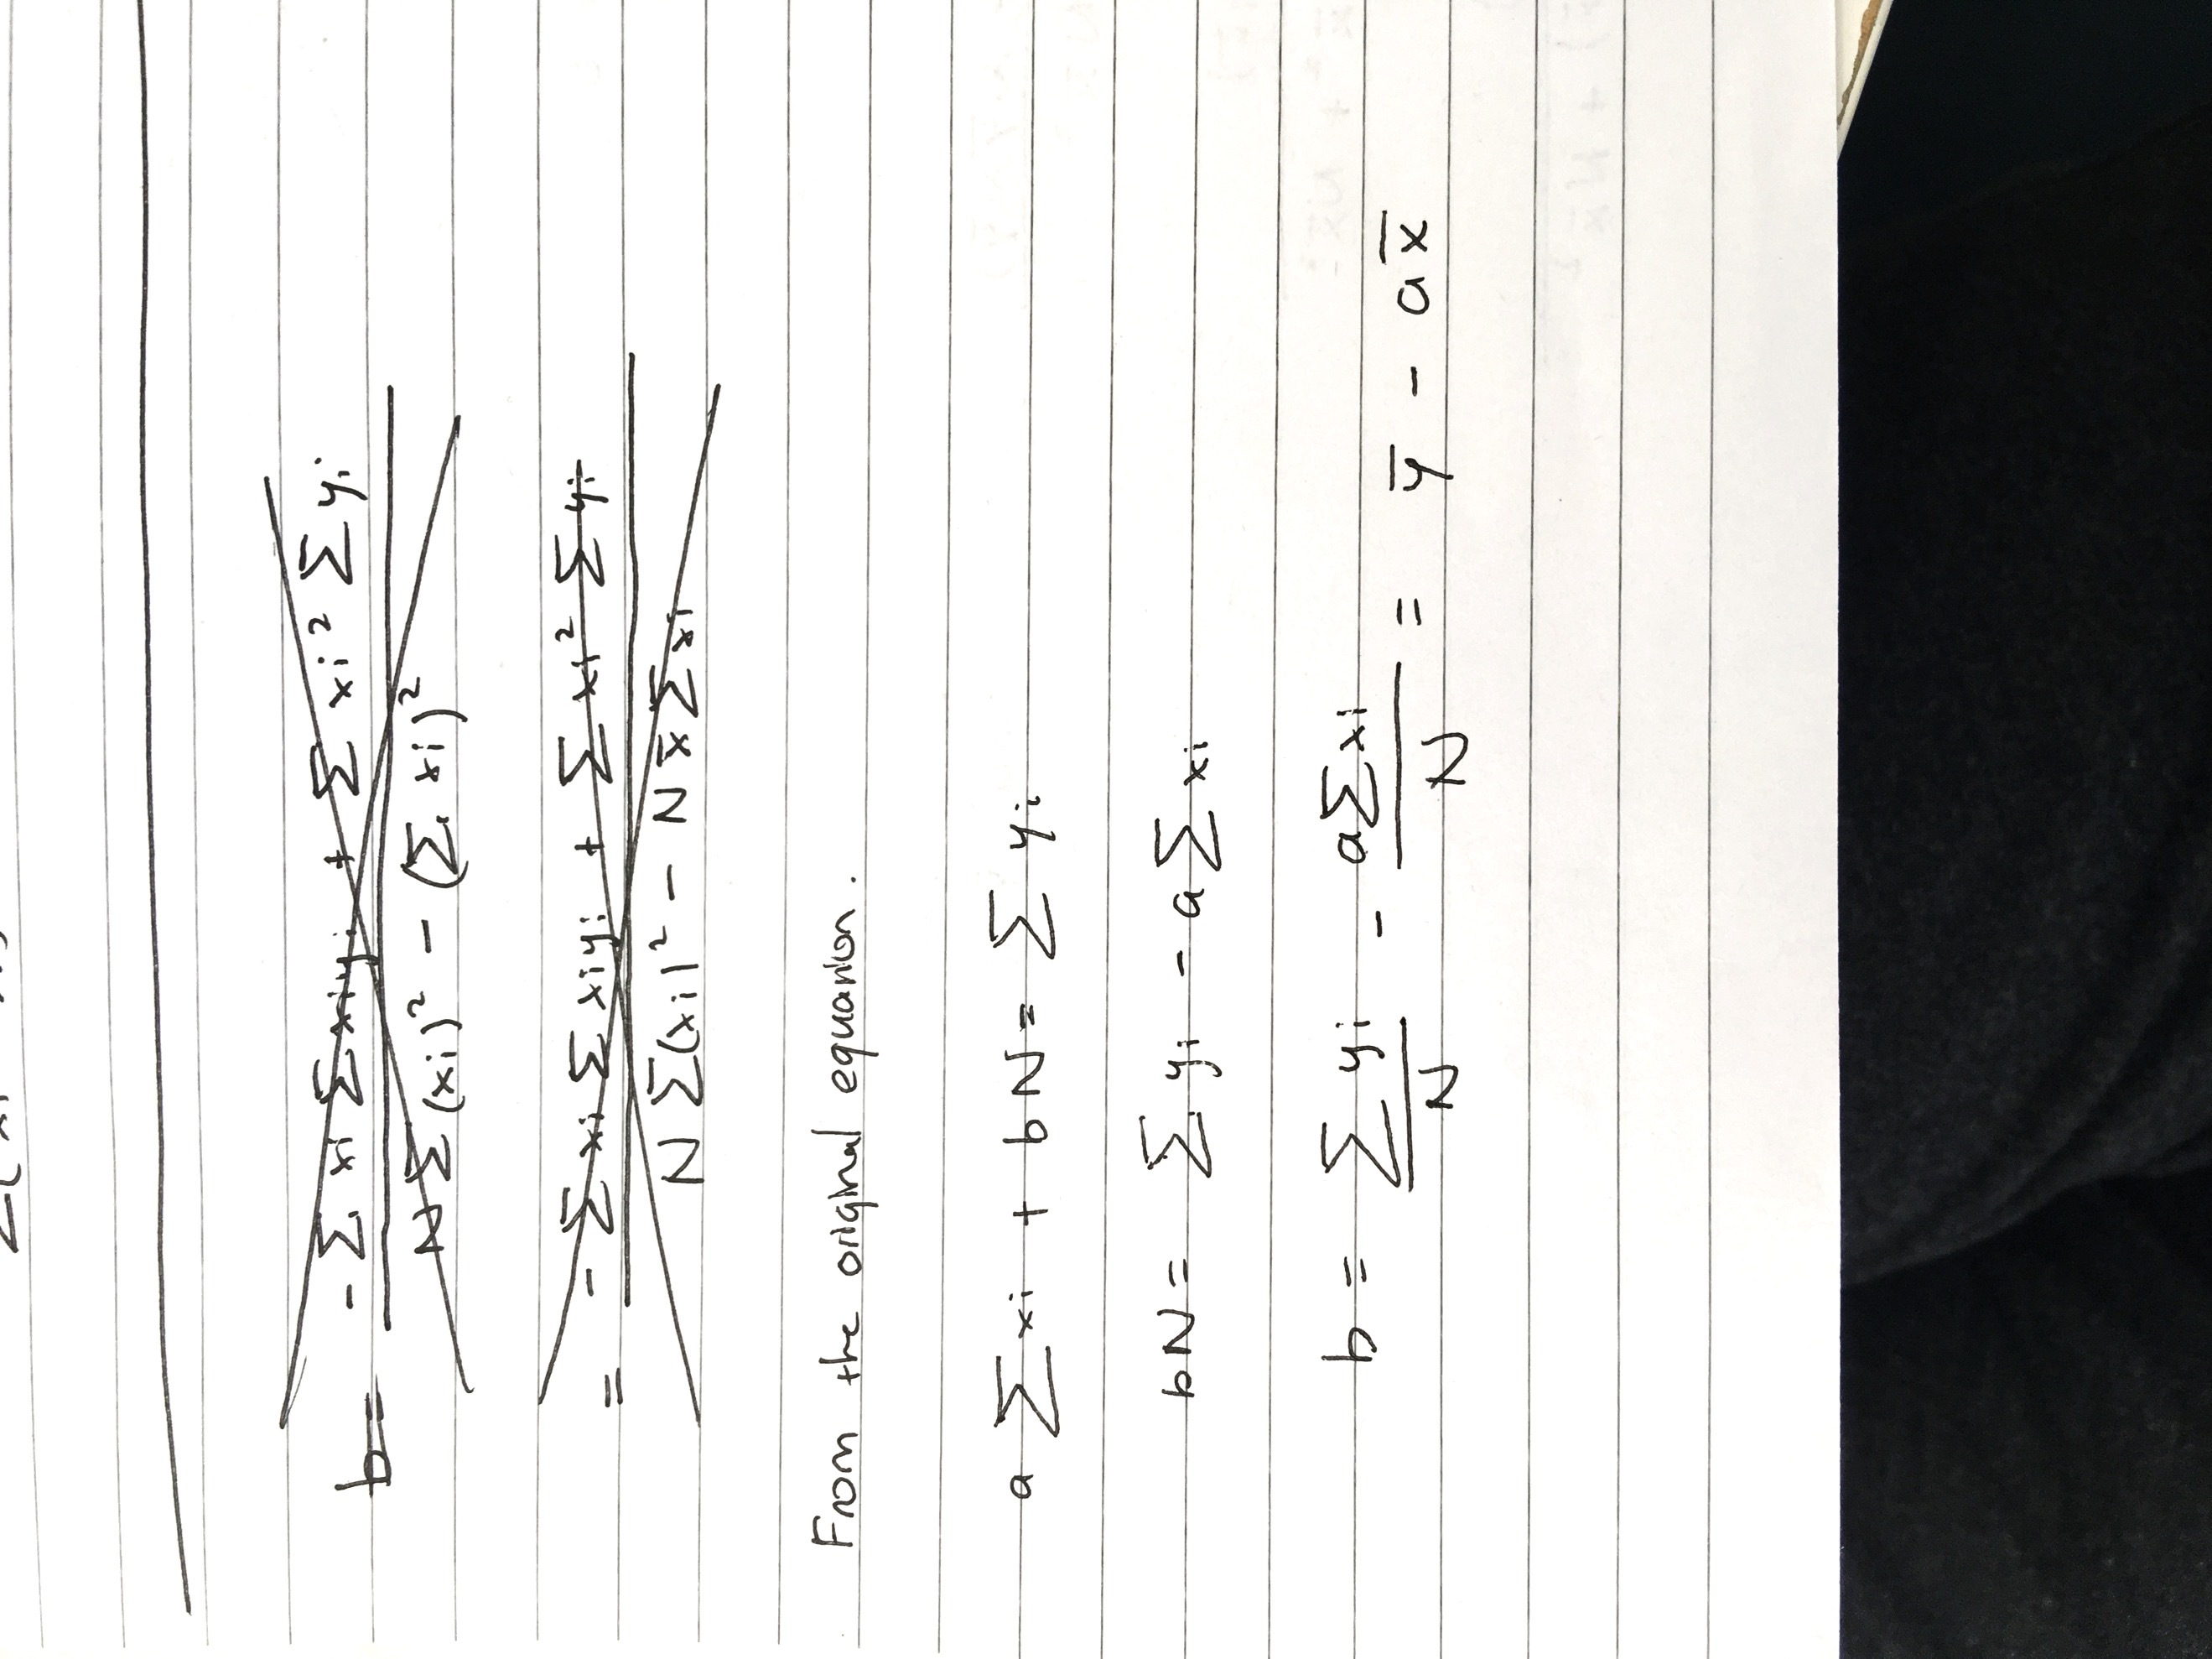 b = - ∑ xi ∑ xiyi + ∑ xi² ∑ yi / N ∑ (xi)² - (∑ xi)²
= - ∑ xi ∑ xiyi + ∑ xi² ∑ yi / N ∑ (xi)² - N x̄ ∑ xi
From the original equation.
a ∑ xi + bN = ∑ yi
bN = ∑ yi - a ∑ xi
b = ∑ yi / N - a∑xi / N = ȳ - a x̄